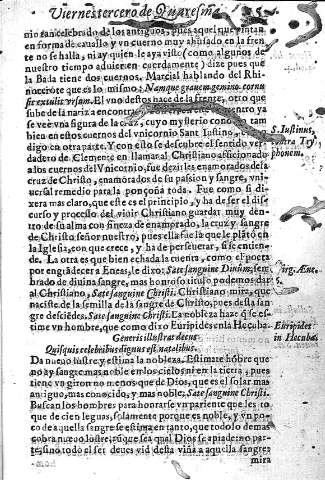 Viernes tercero de Quaresma
nio tan celebrado de los antiguos, pues aquel que pintan
en forma de cauallo y vn cuerno muy ahusado en la fren
te no se halla, ni ay quien le aya visto (como algunos de
nuestro tiempo aduierten cuerdamente) dize pues que
la Bada tiene dos cuernos. Marcial hablando del Rhi-
nocerote que es lo mismo: Namque grauem gemino cornu
sic extulit vrsum. El vno destos nace de la frente, otro que
sube de la nariz a encontra con
se vee vna figura de la cruz, cuyo mysterio conocio tam
bien en estos cuernos del vnicornio San Iustino, como
digo en otra parte. Y con esto se descubre el sentido ver-
dadero de Clemente en llamar al Christiano aficionado
a los cuernos del Vnicornio, fue dezirles enamorados de la
cruz de Christo, enamorados de su passion y sangre, vni-
uersal remedio para la ponçoña toda. Fue como si di-
xera mas claro, que este es el principio, y ha de ser el dis-
curso y processo del viuir Christiano guardar muy den-
tro de su alma con fineza de enamorado, la cruz y sangre
de Christo señor nuestro, pues ella fue la que le plantò en
la Iglesia, con que crece, y ha de perseuerar, si se entien-
de. La otra es que bien echada la cuenta, como el poeta
por engrãdecer a Eneas, le dixo: Sate sanguine Diuûm, sem
brado de diuina sangre, mas honroso titulo podemos dar
al Christiano, Sate sanguine Christi. Christiano mira, que
naciste de la semilla de la sangre de Christo, pues desta san
gre deciẽdes. Sate sanguine Christi. La nobleza haze q̃ se es-
time vn hombre, que como dixo Euripides en la Hecuba
Generis illustras decus
Quisquis celebribus dignus est natalibus.
Da nueuo lustre y estima la nobleza. Estimate hõbre que
no ay sangre mas noble en los cielos ni en la tierra, pues
tiene vn giron no menos que de Dios, que es el solar mas
antiguo, mas conocido, y mas noble, Sate sanguine Christi.
Buscan los hombres para honrarse vn pariente que les to
que de cien leguas, solamente porque es noble, y vn po-
co de aquella sangre se estima en tanto, que todo lo demas
cobra nueuo lustre, qué sea qual Dios se apiade no par-
te, sino todo el ser deues vid de la viña a aquella sangre,
mira
S. Iustinus,
contra Try
phonem.
Virg. Æne.
Euripides
in Hecuba.